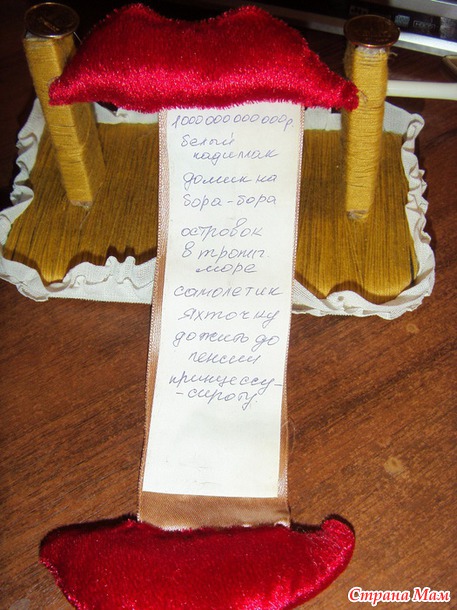 1000 000 000 000р
белый
кадиллак
домик на
бора-бора
островок
в тропич.
море
самолетик
яхточку
дожить до
пенсии
принцессу-
-сироту.
Страна Мам